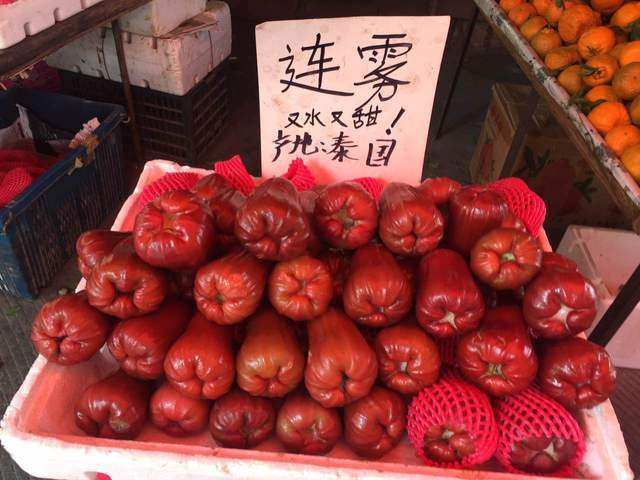 连雾
又水又甜!
产地:泰国